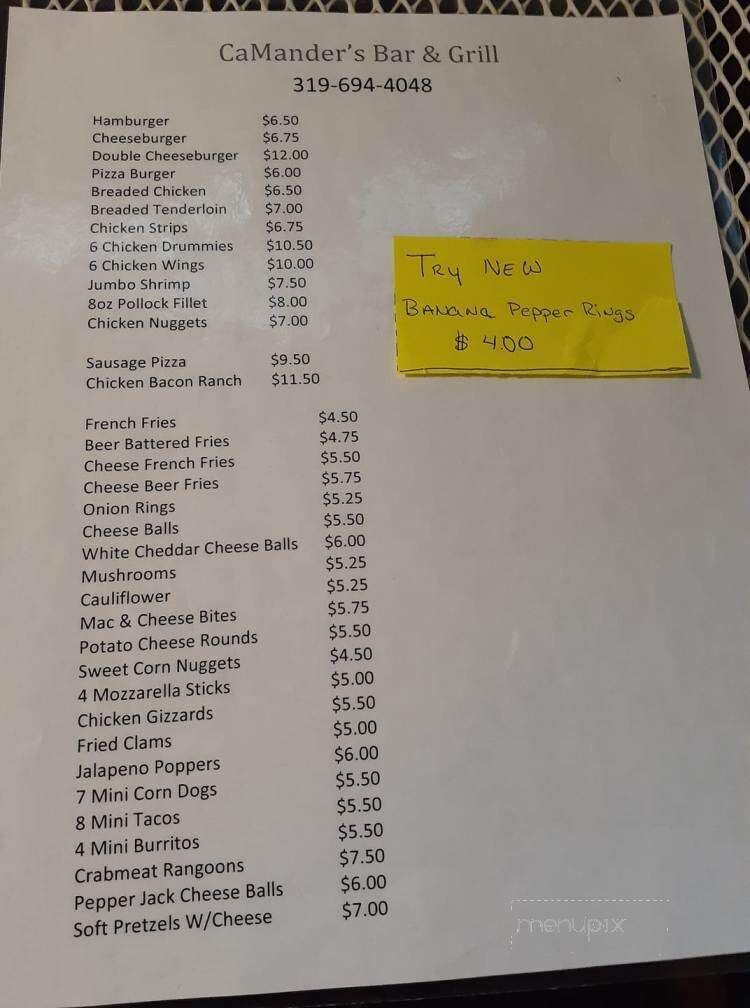 CaMander's Bar & Grill
319-694-4048
Hamburger $6.50
Cheeseburger $6.75
Double Cheeseburger $12.00
Pizza Burger $6.00
Breaded Chicken $6.50
Breaded Tenderloin $7.00
Chicken Strips $6.75
6 Chicken Drummies $10.50
6 Chicken Wings $10.00
Jumbo Shrimp $7.50
8oz Pollock Fillet $8.00
Chicken Nuggets $7.00
Sausage Pizza $9.50
Chicken Bacon Ranch $11.50
French Fries $4.50
Beer Battered Fries $4.75
Cheese French Fries $5.50
Cheese Beer Fries $5.75
Onion Rings $5.25
Cheese Balls $5.50
White Cheddar Cheese Balls $6.00
Mushrooms $5.25
Cauliflower $5.25
Mac & Cheese Bites $5.75
Potato Cheese Rounds $5.50
Sweet Corn Nuggets $4.50
4 Mozzarella Sticks $5.00
Chicken Gizzards $5.50
Fried Clams $5.00
Jalapeno Poppers $6.00
7 Mini Corn Dogs $5.50
8 Mini Tacos $5.50
4 Mini Burritos $5.50
Crabmeat Rangoons $7.50
Pepper Jack Cheese Balls $6.00
Soft Pretzels W/Cheese $7.00
Try New
Banana Pepper Rings
$ 4.00
menupix